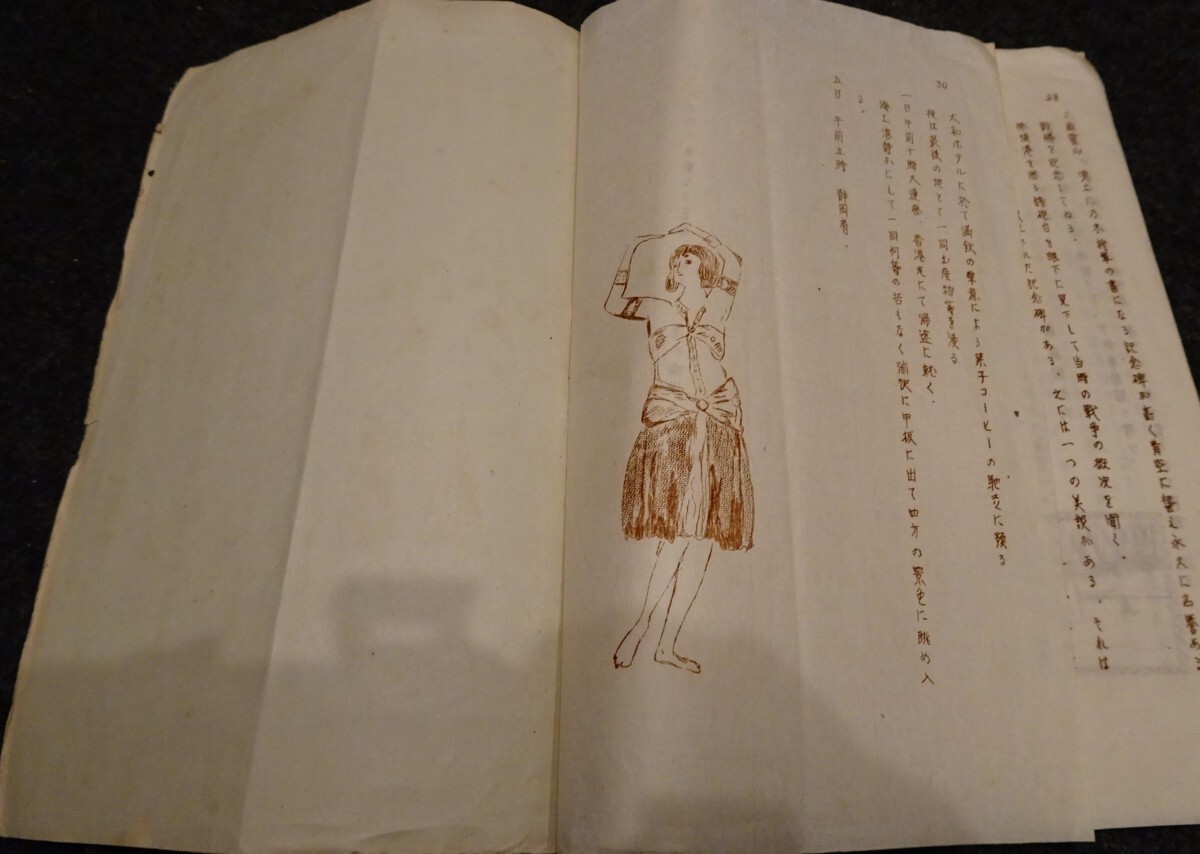 28
頂上に乃木将軍の書になる記念碑が高く青空に聳え永久に名誉ある
戦勝を記念してゐる。
旅順港を囲る諸砲台を眼下に見下して当時の戦争の概況を聞く。
された記念碑がある。之には一つの美談がある。それは
30
大和ホテルに於て満鉄の厚意による菓子コーヒーの馳走に預る
夜は最後の地とて一同土産物等を漁る
一日午前十時大連発、香港丸にて帰途に就く。
海上港静かにして一同何等の苦もなく愉快に甲板に出て四方の景色に眺め入
る。
五日 午前五時 静岡着。